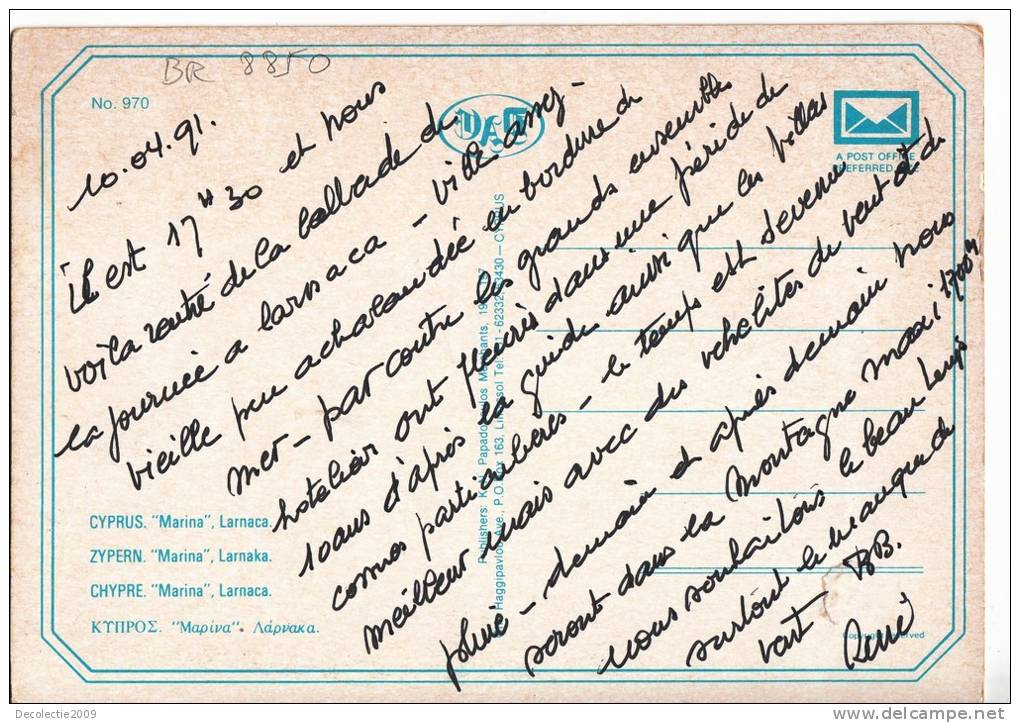 BR 8850
No. 970
A POST OFFICE
PREFERRED SIZE
10.04.91.
Il est 17H30 et nous
voila rentré de la ballade de
la journée a larnaca - ville assez
vieille peu achalandée en bordure de
mer - par contre les grands ensembles
hotelier ont fleuris dans une période de
10 ans d'après la guide ainsi que les villas
comes particulieres - le temps est devenu
meilleur mais avec des velalites de vent et de
pluie - demain et après demain nous
seront dans la montagne maxi 1700m
nous souhaitons le beau temps
surtout le manque de
vent BB.
René
CYPRUS. "Marina", Larnaca.
ZYPERN. "Marina", Larnaka.
CHYPRE. "Marina", Larnaca.
ΚΥΠΡΟΣ. "Μαρίνα". Λάρνακα.
Publishers: Papadopoulos
Haggipavlou Ave., P.O. Box 163, Limassol Tel. CYPRUS
Copyright reserved
Decolectie2009
delcampe.net